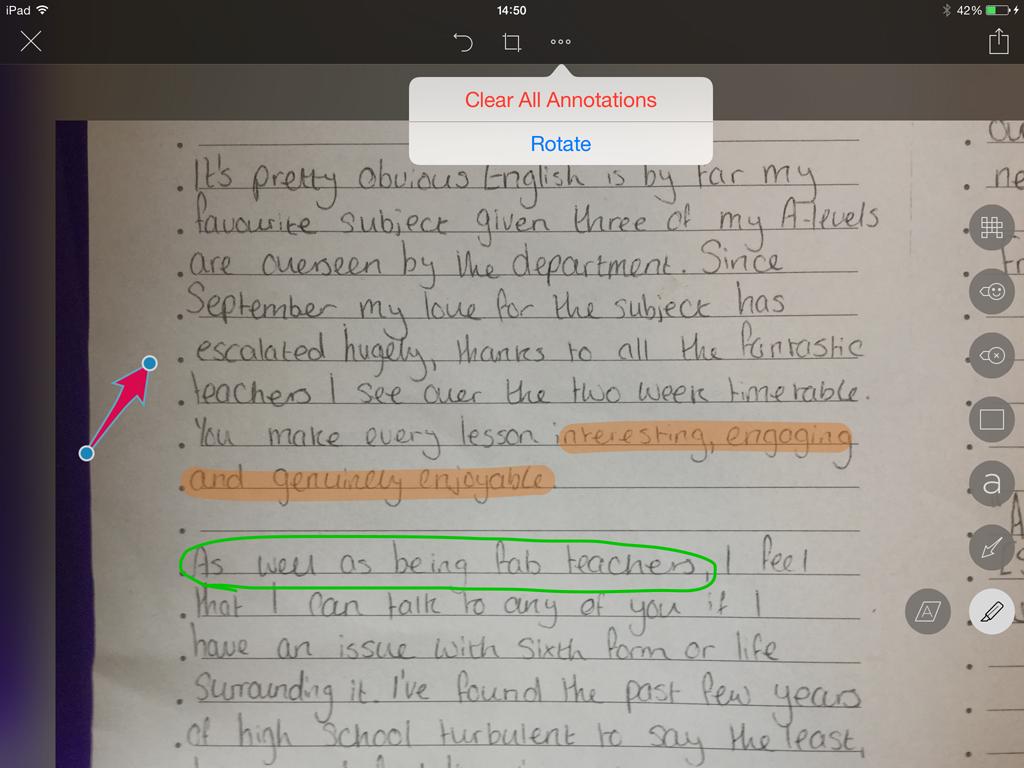 iPad 14:50 42%
Clear All Annotations
Rotate
It's pretty obvious English is by far my
favourite subject given three of my A-levels
are overseen by the department. Since
September my love for the subject has
escalated hugely, thanks to all the fantastic
teachers I see over the two week timetable.
You make every lesson interesting, engaging
and genuinely enjoyable
As well as being fab teachers, I feel
that I can talk to any of you if I
have an issue with sixth form or life
surrounding it. I've found the past few years
of high school turbulent to say the least,
ne
a